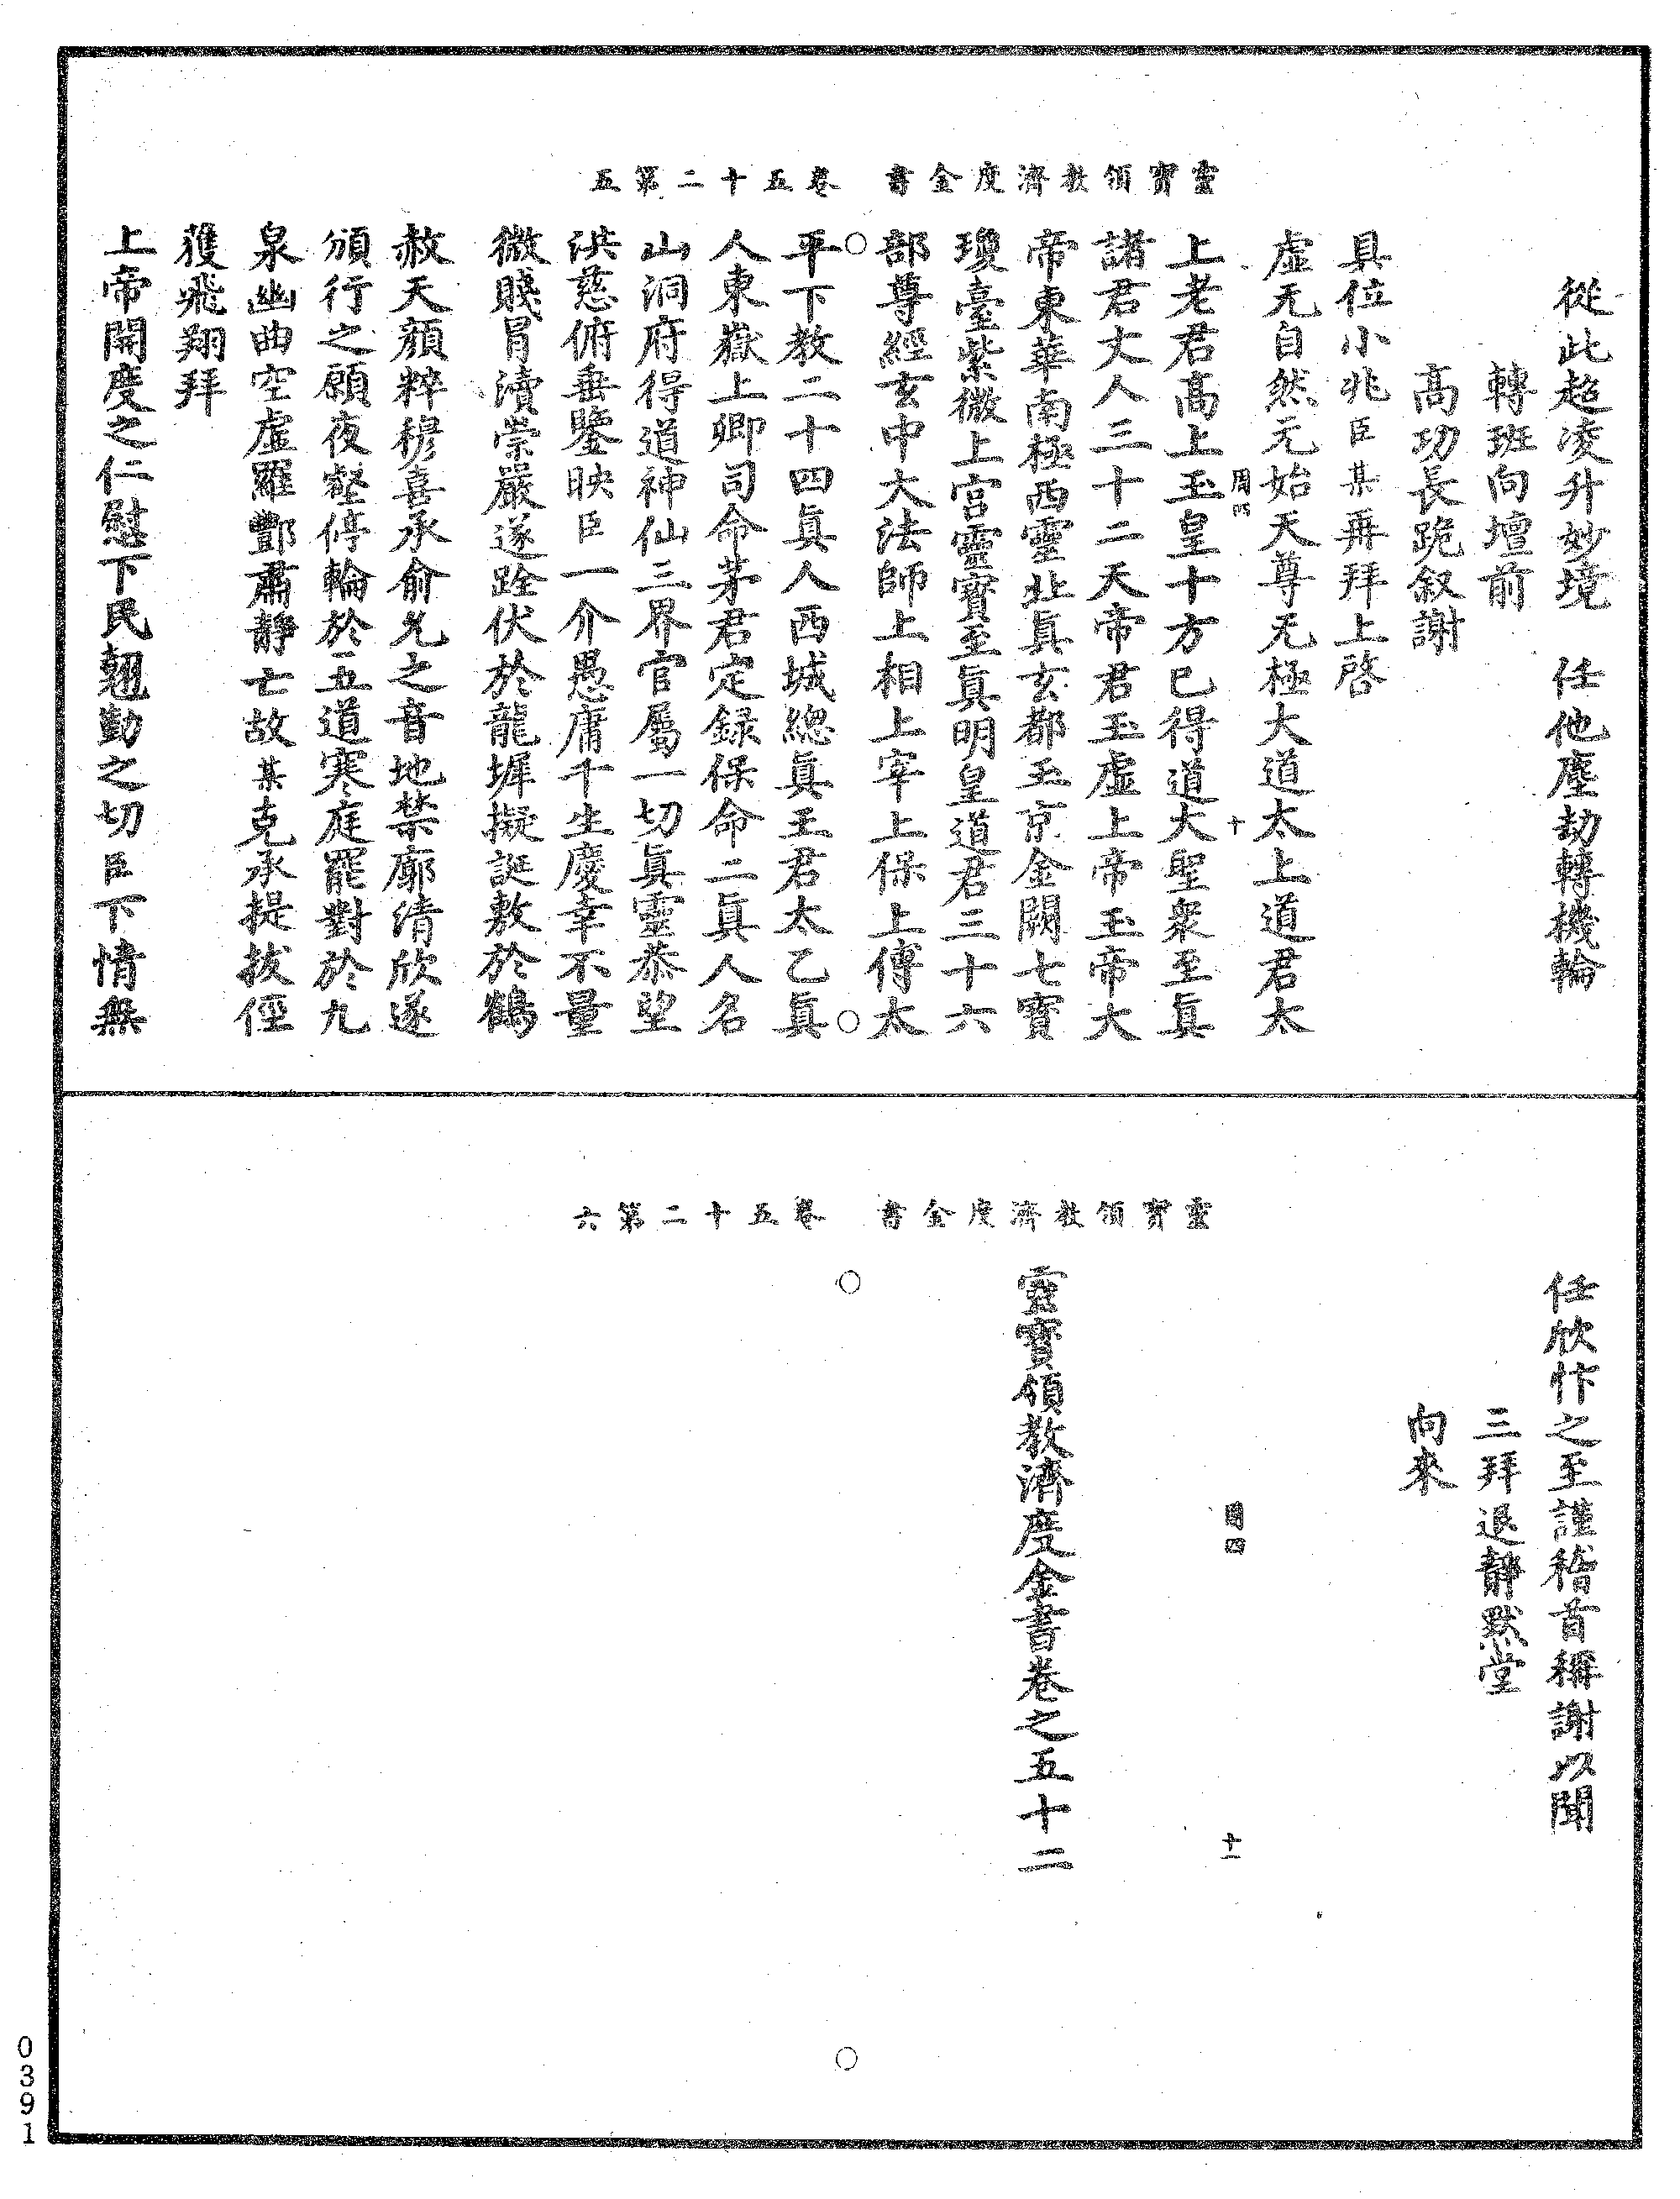 靈寶領教濟度金書　卷五十二第五
從此超凌升妙境　任他塵劫轉機輪
轉班向壇前
高功長跪叙謝
具位小兆臣某再拜上啓
虛无自然元始天尊无極大道太上道君太
周四　十
上老君高上玉皇十方已得道大聖衆至眞
諸君丈人三十二天帝君玉虛上帝玉帝大
帝東華南極西靈北眞玄都玉京金闕七寶
瓊臺紫微上宮靈寶至眞明皇道君三十六
部尊經玄中大法師上相上宰上保上傅太
平下教二十四眞人西城總眞王君太乙眞
人東嶽上卿司命茅君定錄保命二眞人名
山洞府得道神仙三界官屬一切眞靈恭望
洪慈俯垂鑒映臣一介愚庸千生慶幸不量
微賤冒瀆崇嚴遂跧伏於龍墀擬誕敷於鶴
赦天顏粹穆喜承俞允之音地禁廓清欣遂
頒行之願夜壑停輪於五道寒庭罷對於九
泉幽曲空虛羅酆肅靜亡故某克承提拔徑
獲飛翔拜
上帝開度之仁慰下民翹勤之切臣下情無
靈寶領教濟度金書　卷五十二第六
任欣忭之至謹稽首稱謝以聞
三拜退靜默堂
向來
周四　十一
靈寶領教濟度金書卷之五十二
0391